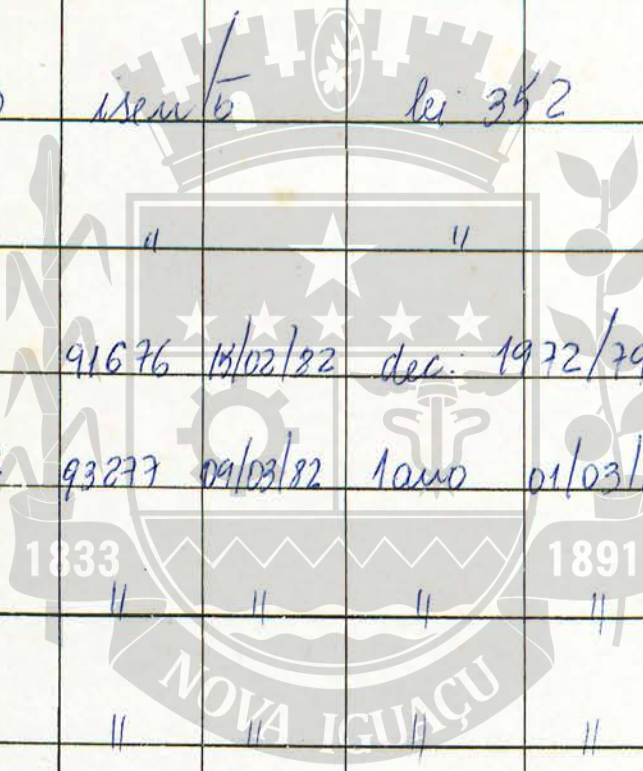 isento lei 352
" "
91676 18/02/82 dec. 1972/79
93277 09/03/82 1 ano 01/03/
1833 1891
" " " "
NOVA IGUAÇU
" " " "